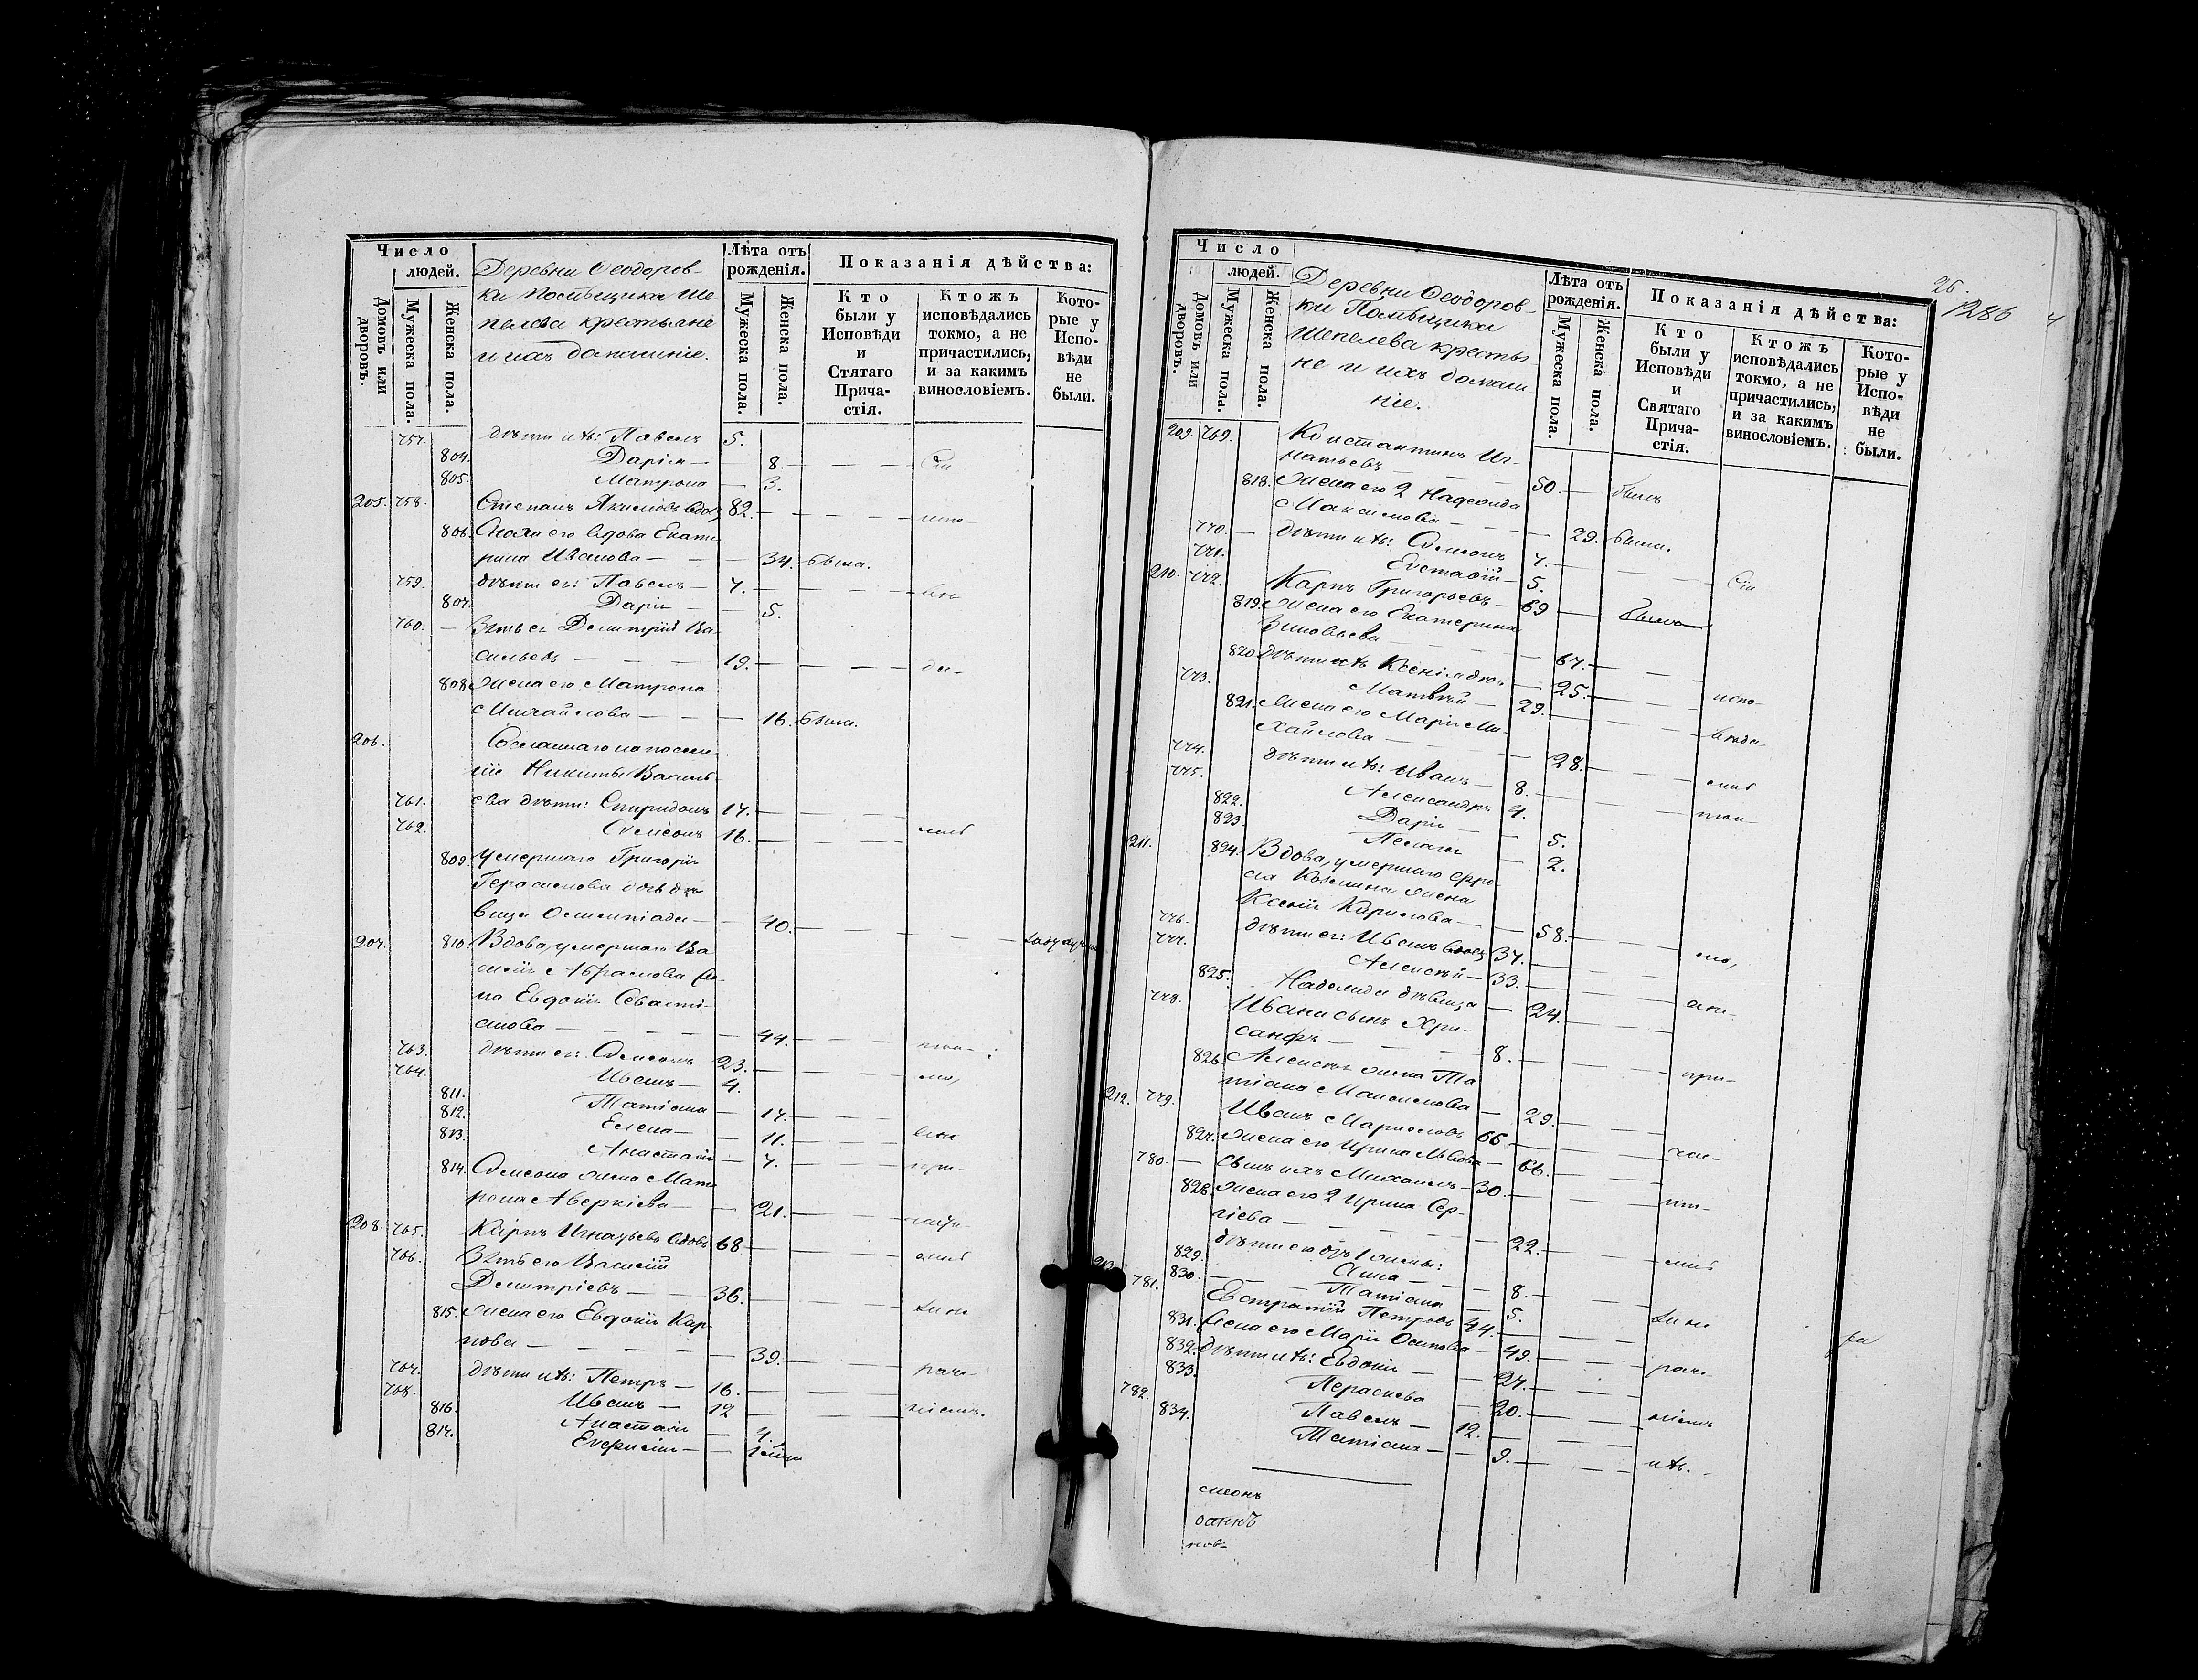 Число
людей.
Домовъ или дворовъ.
Мужеска пола.
Женска пола.
Деревни Ѳеодоров-
ки помѣщика Ше-
пелева крестьяне
и ихъ домашніе.
Лѣта отъ рожденія.
Мужеска пола.
Женска пола.
Показанія дѣйства:
Кто были у Исповѣди и Стятаго Прича-стія.
Ктожъ исповѣдались токмо, а не причастились, и за какимъ винословіемъ.
Кото-рые у Испо-вѣди не были.
757. дѣти ихъ: Павелъ 5.
804. Дарія — — 8. — — — Сіи
805. Матрона — 3.
205. 758. Стефанъ Якимовъ вдовъ 82. — — — —
806. Сноха его вдова Екате-
рина Иванова — — 34. была.
759. дѣти ея: Павелъ — 7. — — — —
807. Дарія — — 5.
760. — Зять ея Димитрій Ва-
сильевъ — — — 19. — — — —
808. Жена его Матрона
Михайлова — — — 16. была.
206. Сосланнаго на поселе-
ніе Никиты Василь-
761. ева дѣти: Спиридонъ 17. —
762. Симеонъ 16. — — — —
809. Умершаго Григорія
Герасимова дочь дѣ-
вица Олимпіада — — 40. — — — —
207. 810. Вдова, умершаго Ва
силія Абрамова же-
на Евдокія Севасті-
анова — — — — — 44. — — —
763. дѣти ея: Симеонъ 23. — — —
764. Иванъ — 4.
811. Татіана — 17. — — —
812. Елена — — 11. — — —
813. Анастасія — 7. — — —
814. Симеона жена Мат-
рона Аверкіева — — 21. — — —
208. 765. Карпъ Игнатьевъ вдовъ 68 — — —
766. Зять его Василій
Димитріевъ — — 36. — — —
815. Жена его Евдокія Кар-
пова — — — — — 39. — — —
767. дѣти ихъ: Петръ — 16. — — —
768. Иванъ — 12 — — —
816. Анастасія — 4.
817. Евфимія — —
26.
1286
Число
людей.
Домовъ или дворовъ.
Мужеска пола.
Женска пола.
Деревни Ѳеодоров-
ки Помѣщика
Шепелева крестья
не и ихъ домаш-
ніе.
Лѣта отъ рожденія.
Мужеска пола.
Женска пола.
Показанія дѣйства:
Кто были у Исповѣди и Святаго Прича-стія.
Ктожъ исповѣдались токмо, а не причастились, и за какимъ винословіемъ.
Кото-рые у Испо-вѣди не были.
209. 769. Константинъ Иг-
натьевъ — — 50. — былъ
818. Жена его 2 Надежда
Максимова — — — 29. была.
770. — дѣти ихъ: Симеонъ 7. — — — —
771. Евстафій — 5. Сіи
210. 772. Карпъ Григорьевъ — 69 —
819. Жена его Екатерина
Зиновьева — — — 67. — — —
820. дѣти ихъ Ксенія — 25. — — —
773. Матвѣй — 29. — — —
821. Жена его Марія Ми-
хайлова — — — 28. — — —
774. дѣти ихъ: Иванъ — 8. — — —
775. Александръ 4.
822. Дарія — — 5.
823. Пелагія — 2.
211. 824. Вдова, умершаго Фро-
ла Кузмина жена
Ксенія Кирилова — — 58. — — —
776. дѣти ея: Иванъ вдовъ 37. — — —
777. Алексѣй — 33. — — —
825. Надежда дѣвица — 24. — — —
778. Ивана сынъ Хри-
санфъ — — — 8. — — —
826. Алексѣя жена Та
тіана Максимова — 29. — — —
212. 779. Иванъ Марковъ 66 — — —
827. Жена его Ирина Львова — 66. — — —
780. — Сынъ ихъ Михаилъ — 30. — — —
828. Жена его 2 Ирина Сер-
гіева — — — — 22. — — —
дѣти его отъ 1 жены:
829. Анна — — 8. — — —
830. — — Татіана — 5.
781. Евстратій Петровъ 44. — — —
831. Жена его Марія Осипова — 49. — — —
832. дѣти ихъ: Евдокія — — 27. — — —
833. Параскева — 20. — — —
782. Павелъ — 12. — — —
834. Татіана — — 9. — — — ихъ.